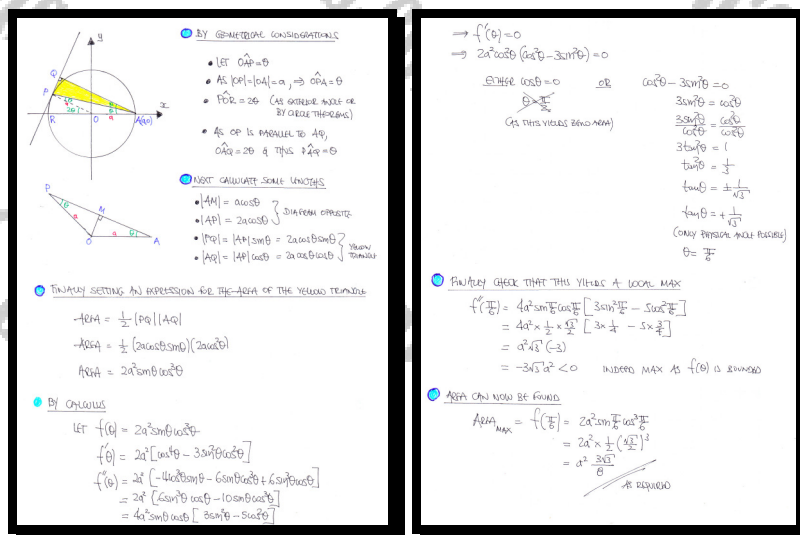 y
Q
P
x
R
O
A(a,0)
2θ
a
θ
BY GEOMETRICAL CONSIDERATIONS
• LET OÂP=θ
• AS |OP|=|OA|=a, ⇒ OP̂A=θ
• PÔR = 2θ (AS EXTERIOR ANGLE OR
BY CIRCLE THEOREMS)
• AS OP IS PARALLEL TO AQ,
OÂQ=2θ & THUS PÂQ=θ
NEXT CALCULATE SOME LENGTHS
P
M
θ
a
a
θ
O
A
• |AM| = acosθ
• |AP| = 2acosθ
DIAGRAM OPPOSITE
• |PQ| = |AP|sinθ = 2acosθsinθ
• |AQ| = |AP|cosθ = 2acosθcosθ
YELLOW
TRIANGLE
FINALLY SETTING AN EXPRESSION FOR THE AREA OF THE YELLOW TRIANGLE
AREA = 1/2 |PQ||AQ|
AREA = 1/2 (2acosθsinθ)(2acos²θ)
AREA = 2a²sinθcos³θ
BY CALCULUS
LET f(θ) = 2a²sinθcos³θ
f'(θ) = 2a²[cos⁴θ - 3sin²θcos²θ]
f''(θ) = 2a²[-4cos³θsinθ - 6sinθcos³θ + 6sin³θcosθ]
= 2a²[6sin³θcosθ - 10sinθcos³θ]
= 4a²sinθcosθ[3sin²θ - 5cos²θ]
⇒ f'(θ) = 0
⇒ 2a²cos²θ(cos²θ - 3sin²θ) = 0
EITHER cosθ = 0 OR cos²θ - 3sin²θ = 0
θ = π/2
(AS THIS YIELDS ZERO AREA)
3sin²θ = cos²θ
3sin²θ/cos²θ = cos²θ/cos²θ
3tan²θ = 1
tan²θ = 1/3
tanθ = ± 1/√3
tanθ = + 1/√3
(ONLY PHYSICAL ANGLE POSSIBLE)
θ = π/6
FINALLY CHECK THAT THIS YIELDS A LOCAL MAX
f''(π/6) = 4a²sin π/6 cos π/6 [3sin² π/6 - 5cos² π/6]
= 4a² × 1/2 × √3/2 [3×1/4 - 5×3/4]
= a²√3 (-3)
= -3√3 a² < 0 INDEED MAX AS f(θ) IS BOUNDED
AREA CAN NOW BE FOUND
AREA MAX = f(π/6) = 2a² sin π/6 cos³ π/6
= 2a² × 1/2 (√3/2)³
= a² 3√3/8
AS REQUIRED